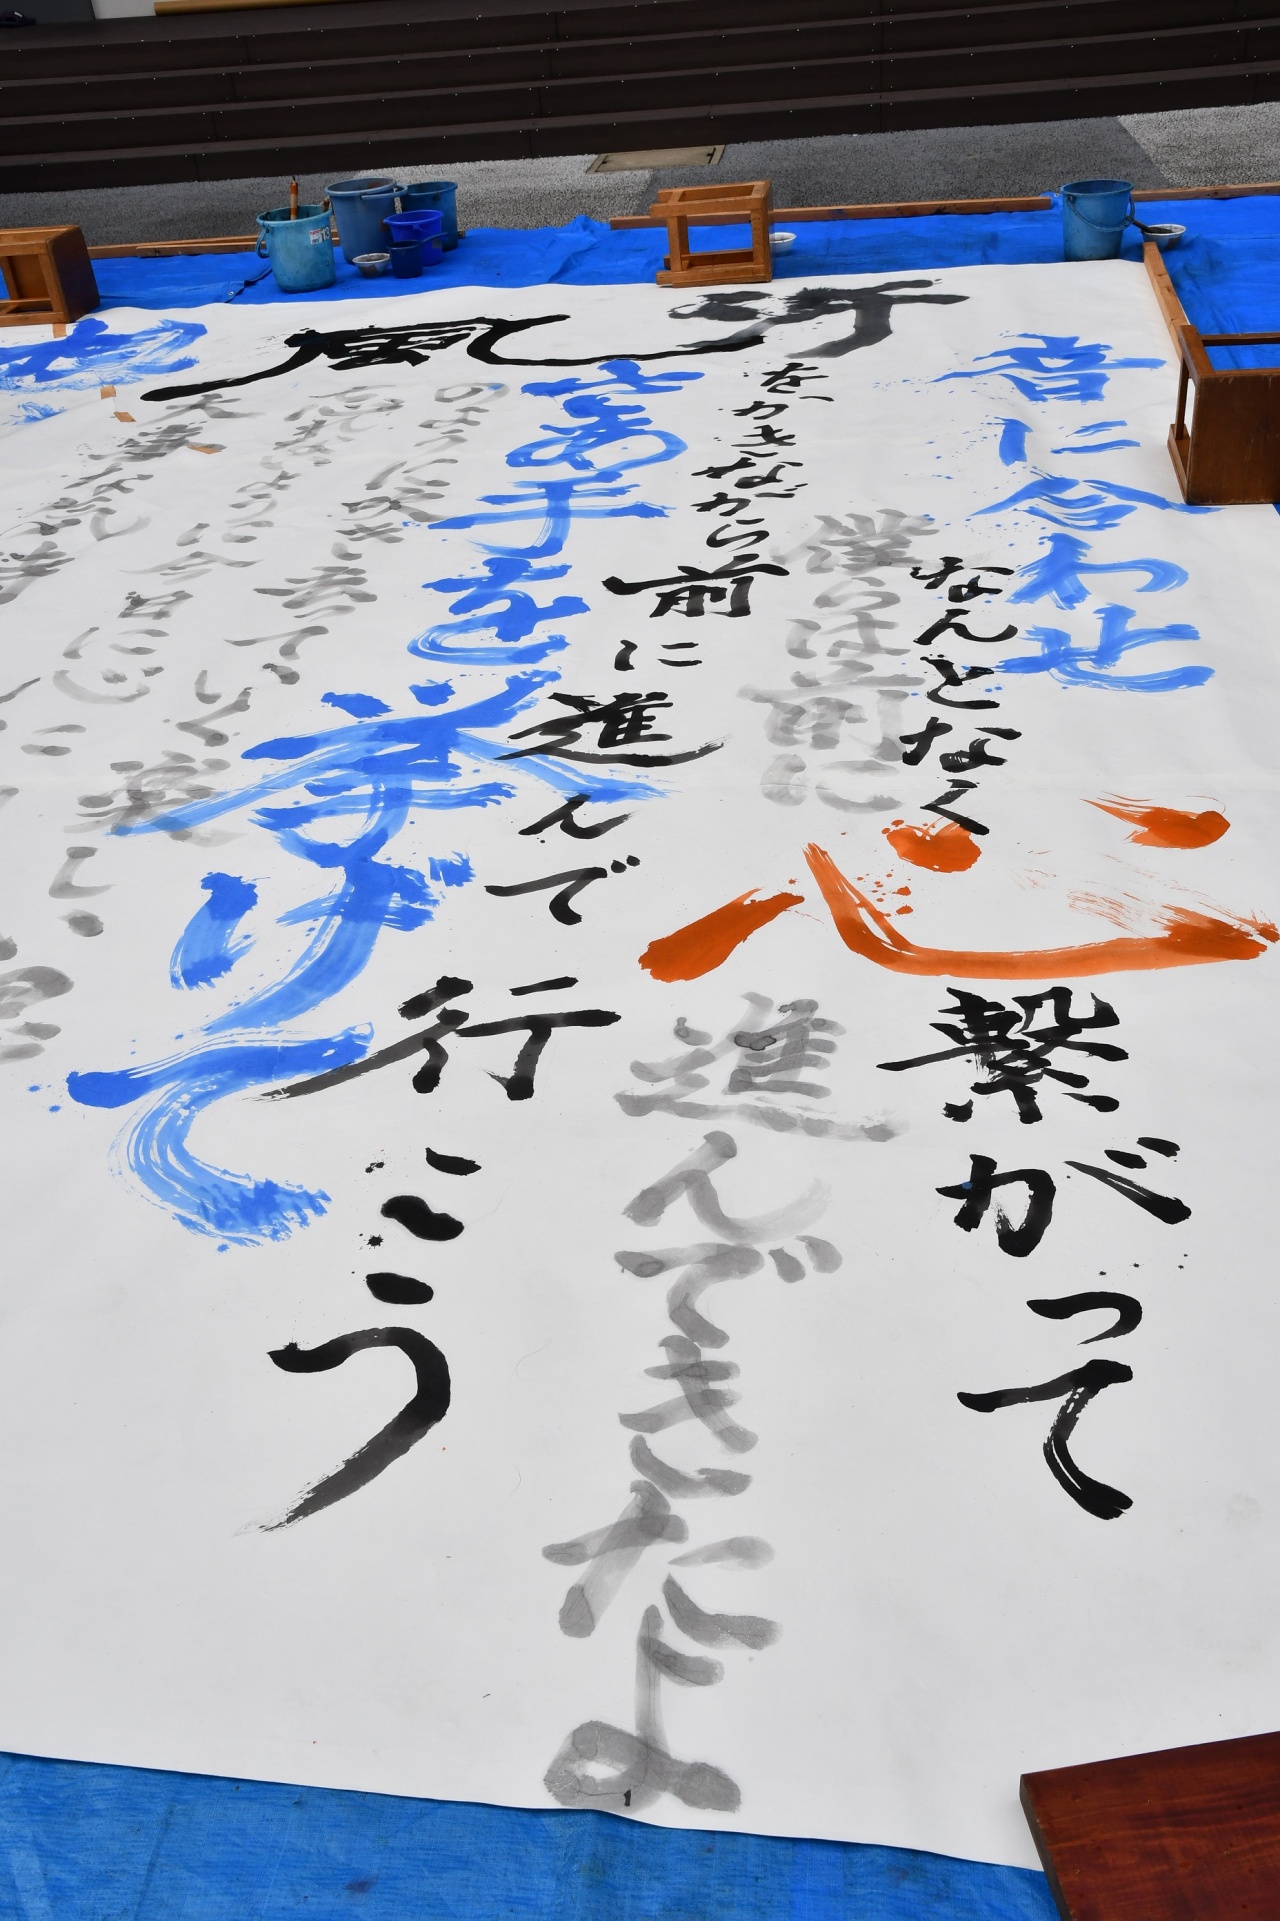 音に合わせ
なんとなく心繋がって
僕らは前に進んできたよ
汗をかきながら前に進んで行こう
さあ手を挙げて
風のように吹き去っていく楽し
忘れないように今日に
大事な